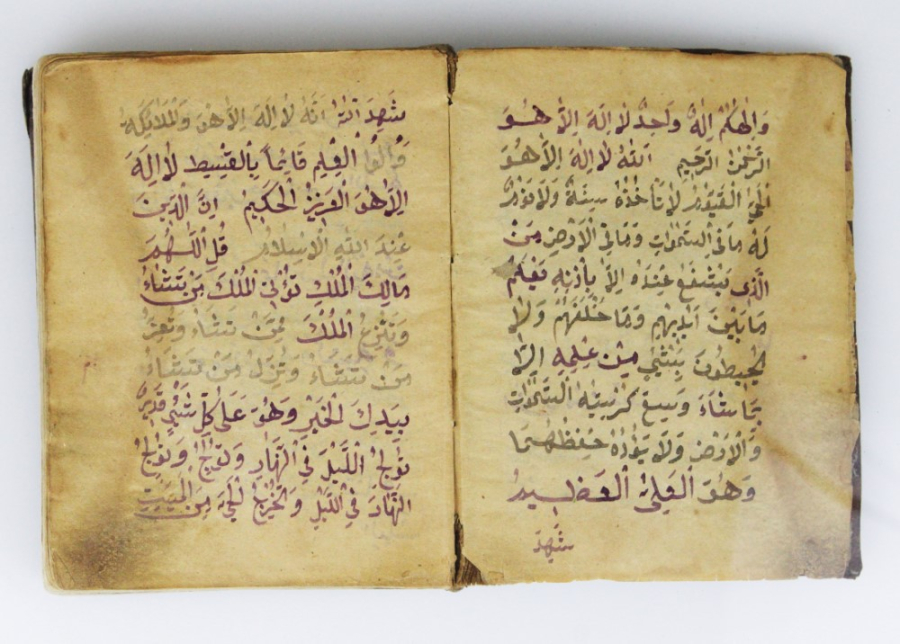 وَإِلٰهُكُمْ إِلٰهٌ وَاحِدٌ لَا إِلٰهَ إِلَّا هُوَ
الرَّحْمٰنُ الرَّحِيمُ اَللهُ لَا إِلٰهَ إِلَّا هُوَ
الْحَيُّ الْقَيُّومُ لَا تَأْخُذُهُ سِنَةٌ وَلَا نَوْمٌ
لَهُ مَا فِي السَّمٰوَاتِ وَمَا فِي الْأَرْضِ مَنْ
الَّذِي يَشْفَعُ عِنْدَهُ إِلَّا بِإِذْنِهِ يَعْلَمُ
مَا بَيْنَ أَيْدِيهِمْ وَمَا خَلْفَهُمْ وَلَا
يُحِيطُونَ بِشَيْءٍ مِنْ عِلْمِهِ إِلَّا
بِمَا شَاءَ وَسِعَ كُرْسِيُّهُ السَّمٰوَاتِ
وَالْأَرْضَ وَلَا يَؤُدُهُ حِفْظُهُمَا
وَهُوَ الْعَلِيُّ الْعَظِيمُ
شَهِدَ
شَهِدَ اللهُ أَنَّهُ لَا إِلٰهَ إِلَّا هُوَ وَالْمَلَايِكَةُ
وَأُولُوا الْعِلْمِ قَايِمًا بِالْقِسْطِ لَا إِلٰهَ
إِلَّا هُوَ الْعَزِيزُ الْحَكِيمُ إِنَّ الدِّينَ
عِنْدَ اللهِ الْإِسْلَامُ قُلِ اللّٰهُمَّ
مَالِكَ الْمُلْكِ تُؤْتِي الْمُلْكَ مَنْ تَشَاءُ
وَتَنْزِعُ الْمُلْكَ مِمَّنْ تَشَاءُ وَتُعِزُّ
مَنْ تَشَاءُ وَتُذِلُّ مَنْ تَشَاءُ
بِيَدِكَ الْخَيْرُ وَهُوَ عَلَى كُلِّ شَيْءٍ قَدِيرٌ
تُولِجُ اللَّيْلَ فِي النَّهَارِ وَتُولِجُ وَتُولِجُ
النَّهَارَ فِي اللَّيْلِ وَتُخْرِجُ الْحَيَّ مِنَ الْمَيِّتِ